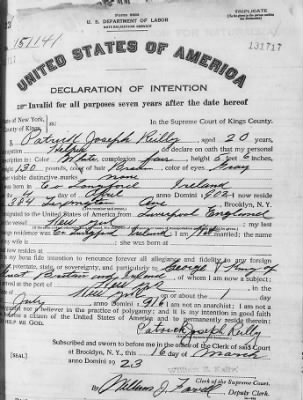 Form 2202
U. S. DEPARTMENT OF LABOR
NATURALIZATION SERVICE
TRIPLICATE
No. 151141
131717
UNITED STATES OF AMERICA
DECLARATION OF INTENTION
Invalid for all purposes seven years after the date hereof
State of New York,
County of Kings,
In the Supreme Court of Kings County.
Patrick Joseph Reilly, aged 20 years,
occupation do declare on oath that my personal
description is: Color White, complexion fair, height 5 feet 6 inches,
weight 130 pounds, color of hair Brown, color of eyes Gray
other visible distinctive marks none
I was born in Co Longford Ireland
on the day of April, anno Domini 1902; I now reside
at 384 Ave, Brooklyn, N. Y.
I emigrated to the United States of America from Liverpool England
on the vessel; my last
foreign residence was Co Longford Ireland; I am not married; the name
of my wife is; she was born at
and now resides at
It is my bona fide intention to renounce forever all allegiance and fidelity to any foreign
prince, potentate, state, or sovereignty, and particularly to George V King of
Great Britain and Ireland, of whom I am now a subject;
I arrived at the port of New York, in the
State of New York, on or about the day
of July, anno Domini 1916; I am not an anarchist; I am not a
polygamist nor a believer in the practice of polygamy; and it is my intention in good faith
to become a citizen of the United States of America and to permanently reside therein:
SO HELP ME GOD.
Patrick Joseph Reilly
Subscribed and sworn to before me in the office of the Clerk of said court
[SEAL]
at Brooklyn, N. Y., this 16 day of March
anno Domini 1923
Clerk of the Supreme Court.
By William J.
Deputy Clerk.